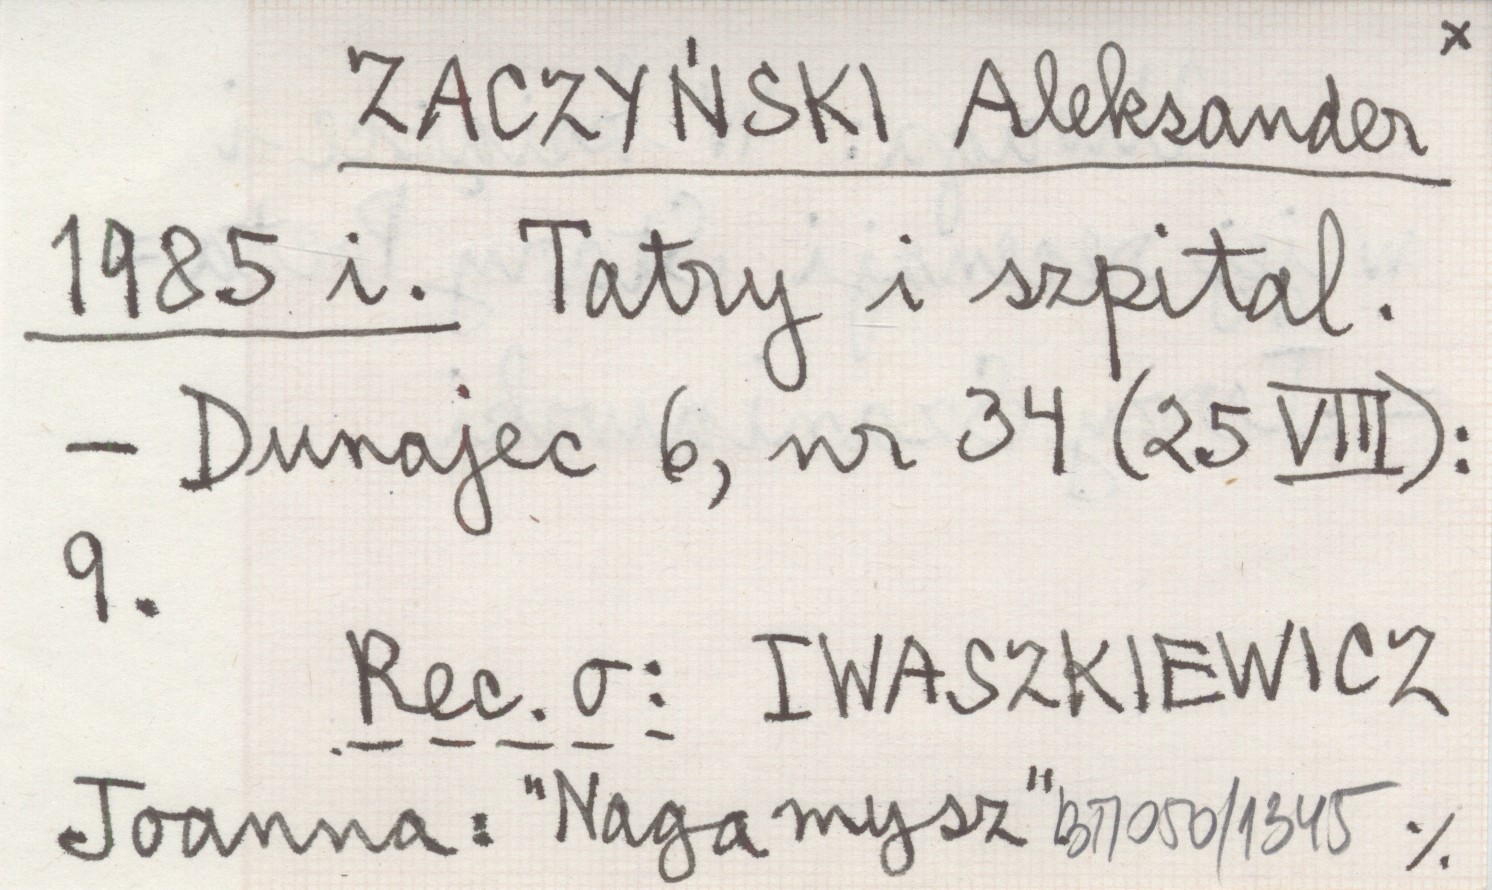 x
ZACZYŃSKI Aleksander
1985 i. Tatry i szpital.
– Dunajec 6, nr 34 (25 VIII):
9.
Rec. o:
IWASZKIEWICZ
Joanna: "Naga mysz" /1345 ·/.